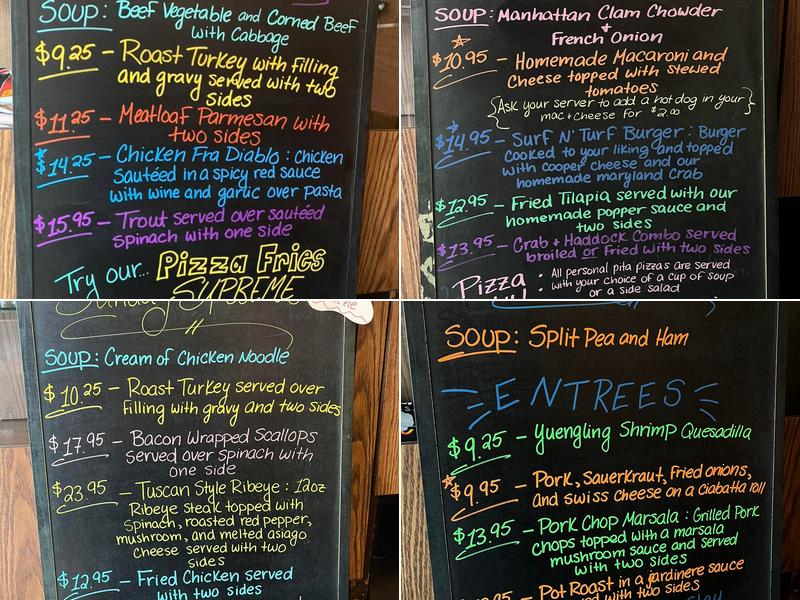 SOUP: Beef Vegetable and Corned Beef
with Cabbage
$9.25 – Roast Turkey with filling
and gravy served with two
sides
$11.25 – Meatloaf Parmesan with
two sides
$14.25 – Chicken Fra Diablo : Chicken
Sautéed in a spicy red sauce
with wine and garlic over pasta
$15.95 – Trout served over sautéed
spinach with one side
Try our... Pizza Fries
SUPREME
SOUP: Manhattan Clam Chowder
+
French Onion
$10.95 – Homemade Macaroni and
Cheese topped with stewed
tomatoes
{Ask your server to add a hot dog in your
mac + cheese for $2.00}
$14.95 – Surf N' Turf Burger : Burger
cooked to your liking and topped
with cooper cheese and our
homemade maryland crab
$12.95 – Fried Tilapia served with our
homemade popper sauce and
two sides
$13.95 – Crab + Haddock Combo served
broiled or Fried with two sides
Pizza : All personal pita pizzas are served
with your choice of a cup of soup
or a side salad
Sunday
SOUP: Cream of Chicken Noodle
$10.25 – Roast Turkey served over
filling with gravy and two sides
$17.95 – Bacon Wrapped Scallops
served over spinach with
one side
$23.95 – Tuscan Style Ribeye : 12oz
Ribeye steak topped with
spinach, roasted red pepper,
mushroom, and melted asiago
cheese served with two
sides
$12.95 – Fried Chicken served
with two sides
SOUP: Split Pea and Ham
ENTREES
$9.25 – Yuengling Shrimp Quesadilla
$9.95 – Pork, Sauerkraut, Fried onions,
and swiss cheese on a ciabatta roll
$13.95 – Pork Chop Marsala : Grilled Pork
chops topped with a marsala
mushroom sauce and served
with two sides
Pot Roast in a jardinere sauce
served with two sides